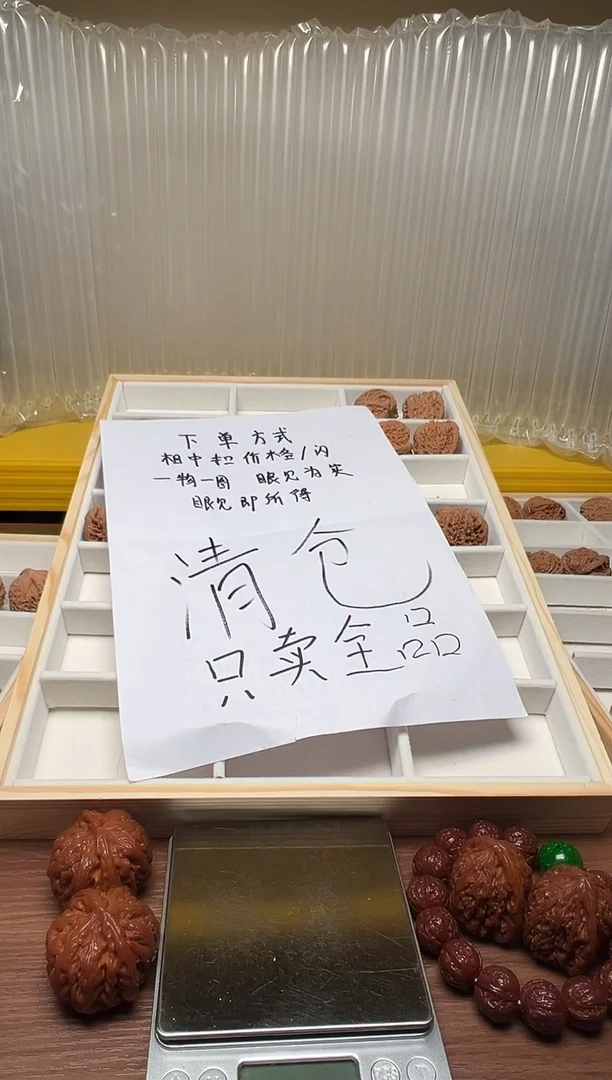 下单方式
相中扣价格/闪
一物一图 眼见为实
眼见即所得
清仓
只卖全品